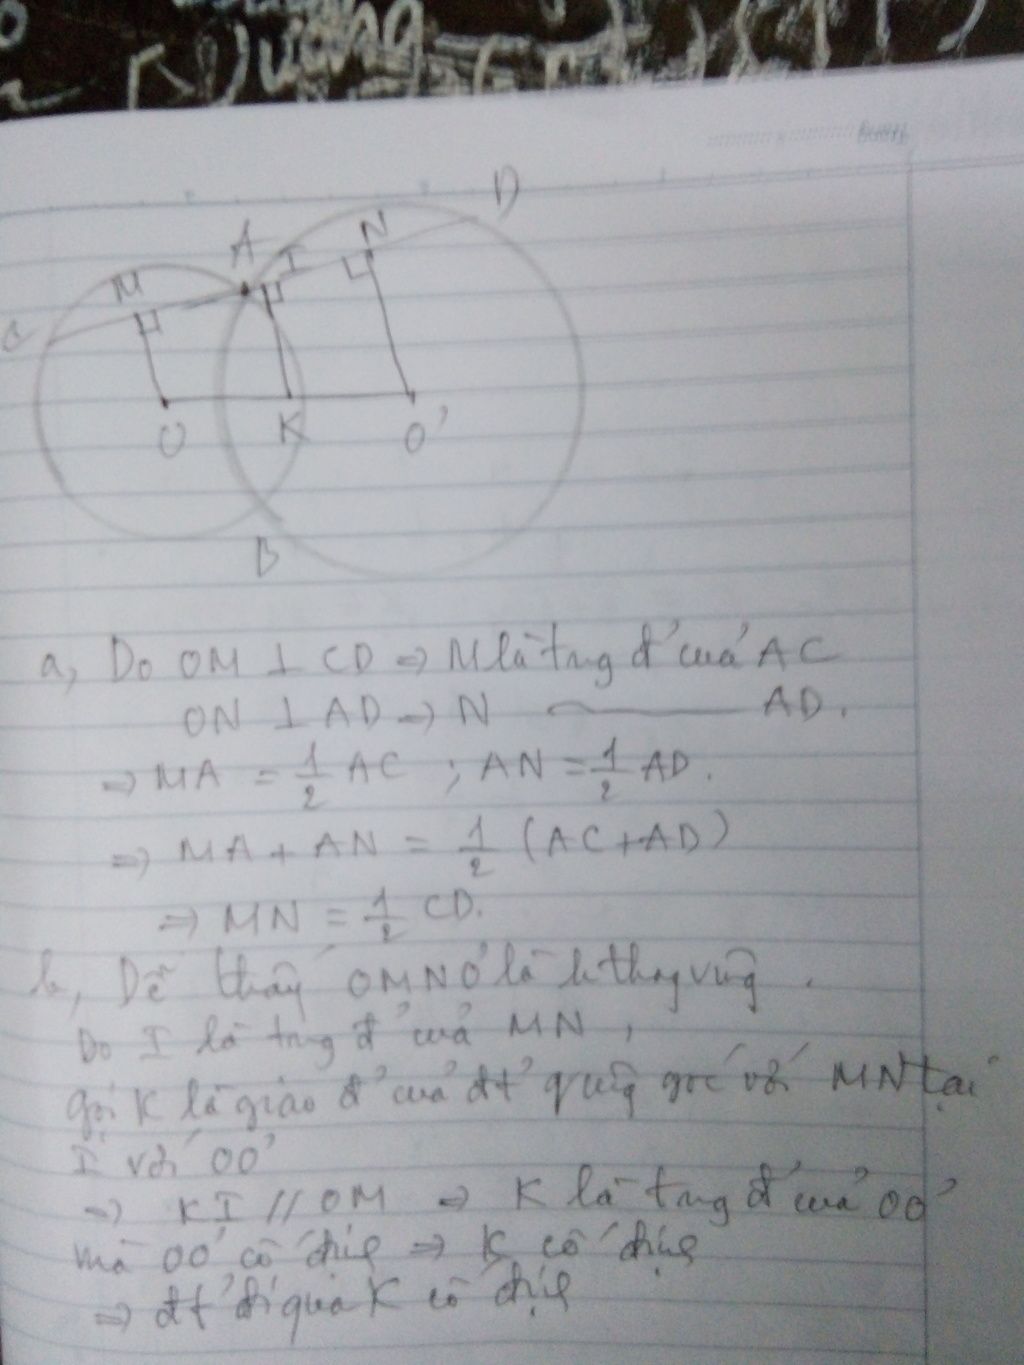 Dương
Trang
D
N
A
I
M
C
O
K
O'
B
a, Do OM ⊥ CD => M là trng đ' của AC
ON ⊥ AD => N ——— AD.
=> MA = 1/2 AC ; AN = 1/2 AD.
=> MA + AN = 1/2 (AC + AD)
=> MN = 1/2 CD.
b, Dễ thấy OMNO' là h thag vuôg.
Do I là trng đ' của MN,
gọi K là giao đ' của đt' vuôg góc với MN tại
I với OO'
=> KI // OM => K là trng đ' của OO'
mà OO' cố địh => K cố địh
=> đt' đi qua K cố địh